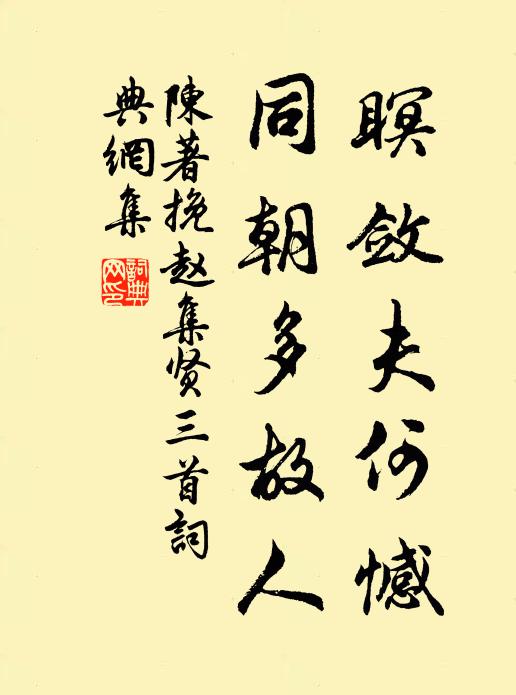 瞑敛夫何憾
同朝多故人
陳著挽赵集贤三首詞
典網集
詞典网印